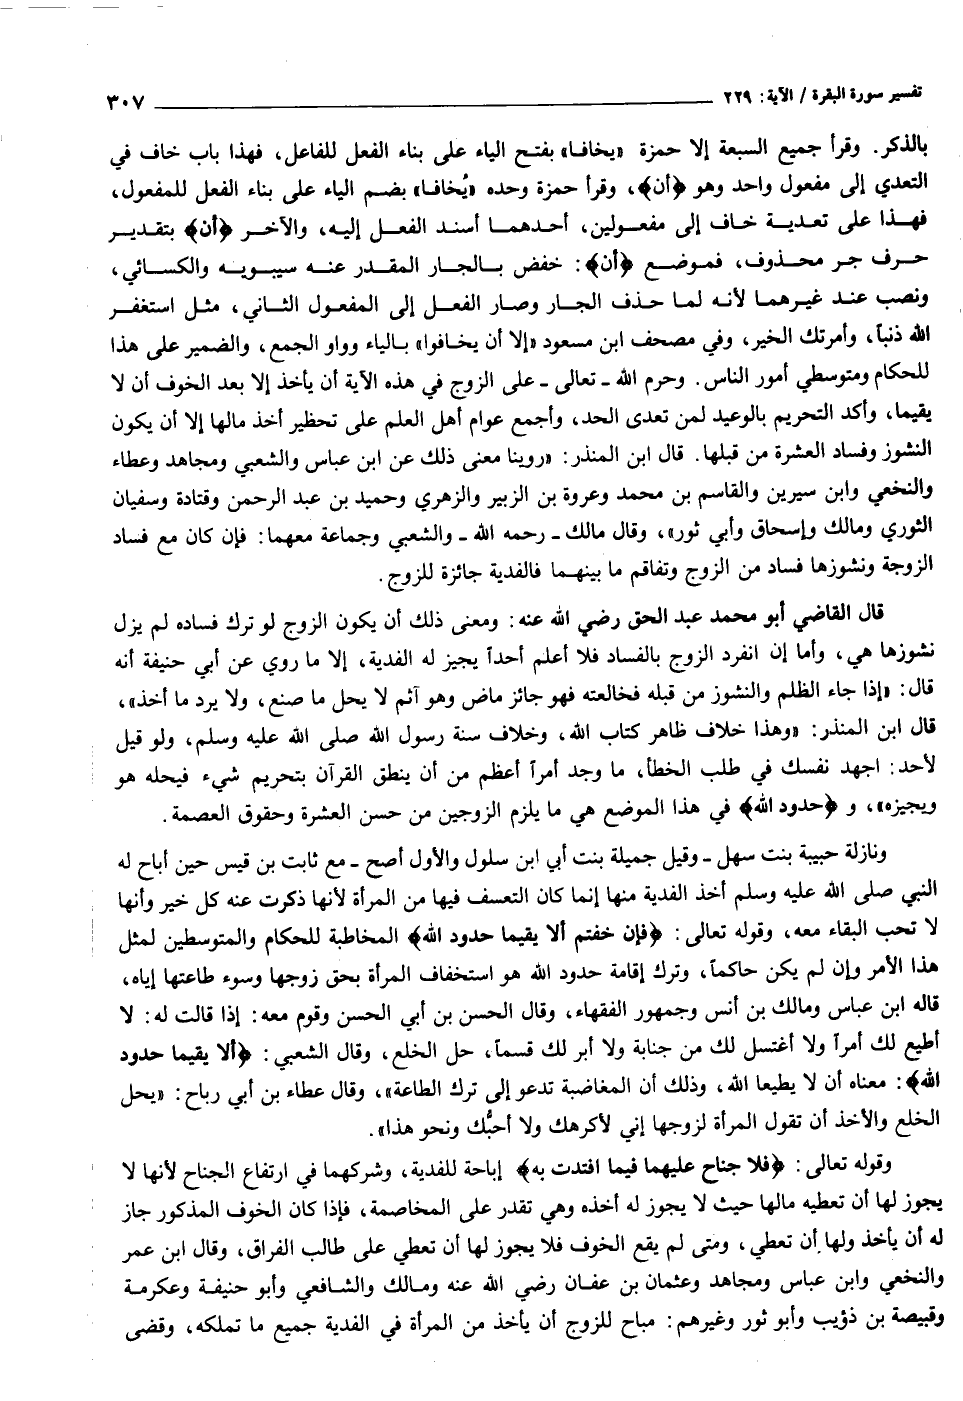 تفسير سورة البقرة / الآية : ٢٢٩ ٣٠٧
بالذكر. وقرأ جميع السبعة إلا حمزة «يخافا» بفتح الياء على بناء الفعل للفاعل، فهذا باب خاف في
التعدي إلى مفعول واحد وهو ﴿أن﴾، وقرأ حمزة وحده «يُخافا» بضم الياء على بناء الفعل للمفعول،
فهذا على تعدية خاف إلى مفعولين، أحدهما أسند الفعل إليه، والآخر ﴿أن﴾ بتقدير
حرف جر محذوف، فموضع ﴿أن﴾: خفض بالجار المقدر عنه سيبويه والكسائي،
ونصب عند غيرهما لأنه لما حذف الجار وصار الفعل إلى المفعول الثاني، مثل استغفر
الله ذنباً، وأمرتك الخير، وفي مصحف ابن مسعود «إلا أن يخافوا» بالياء وواو الجمع، والضمير على هذا
للحكام ومتوسطي أمور الناس. وحرم الله - تعالى - على الزوج في هذه الآية أن يأخذ إلا بعد الخوف أن لا
يقيما، وأكد التحريم بالوعيد لمن تعدى الحد، وأجمع عوام أهل العلم على تحظير أخذ مالها إلا أن يكون
النشوز وفساد العشرة من قبلها. قال ابن المنذر: «روينا معنى ذلك عن ابن عباس والشعبي ومجاهد وعطاء
والنخعي وابن سيرين والقاسم بن محمد وعروة بن الزبير والزهري وحميد بن عبد الرحمن وقتادة وسفيان
الثوري ومالك وإسحاق وأبي ثور»، وقال مالك - رحمه الله - والشعبي وجماعة معهما: فإن كان مع فساد
الزوجة ونشوزها فساد من الزوج وتفاقم ما بينهما فالفدية جائزة للزوج.
قال القاضي أبو محمد عبد الحق رضي الله عنه: ومعنى ذلك أن يكون الزوج لو ترك فساده لم يزل
نشوزها هي، وأما إن انفرد الزوج بالفساد فلا أعلم أحداً يجيز له الفدية، إلا ما روي عن أبي حنيفة أنه
قال: «إذا جاء الظلم والنشوز من قبله فخالعته فهو جائز ماض وهو آثم لا يحل ما صنع، ولا يرد ما أخذ»،
قال ابن المنذر: «وهذا خلاف ظاهر كتاب الله، وخلاف سنة رسول الله صلى الله عليه وسلم، ولو قيل
لأحد: اجهد نفسك في طلب الخطأ، ما وجد أمراً أعظم من أن ينطق القرآن بتحريم شيء فيحله هو
ويجيزه»، و ﴿حدود الله﴾ في هذا الموضع هي ما يلزم الزوجين من حسن العشرة وحقوق العصمة.
ونازلة حبيبة بنت سهل - وقيل جميلة بنت أبي ابن سلول والأول أصح - مع ثابت بن قيس حين أباح له
النبي صلى الله عليه وسلم أخذ الفدية منها إنما كان التعسف فيها من المرأة لأنها ذكرت عنه كل خير وأنها
لا تحب البقاء معه، وقوله تعالى: ﴿فإن خفتم ألا يقيما حدود الله﴾ المخاطبة للحكام والمتوسطين لمثل
هذا الأمر وإن لم يكن حاكماً، وترك إقامة حدود الله هو استخفاف المرأة بحق زوجها وسوء طاعتها إياه،
قاله ابن عباس ومالك بن أنس وجمهور الفقهاء، وقال الحسن بن أبي الحسن وقوم معه: إذا قالت له: لا
أطيع لك أمراً ولا أغتسل لك من جنابة ولا أبر لك قسماً، حل الخلع، وقال الشعبي: ﴿ألا يقيما حدود
الله﴾: معناه أن لا يطيعا الله، وذلك أن المغاضبة تدعو إلى ترك الطاعة»، وقال عطاء بن أبي رباح: «يحل
الخلع والأخذ أن تقول المرأة لزوجها إني لأكرهك ولا أحبُّك ونحو هذا».
وقوله تعالى: ﴿فلا جناح عليهما فيما افتدت به﴾ إباحة للفدية، وشركهما في ارتفاع الجناح لأنها لا
يجوز لها أن تعطيه مالها حيث لا يجوز له أخذه وهي تقدر على المخاصمة، فإذا كان الخوف المذكور جاز
له أن يأخذ ولها أن تعطي، ومتى لم يقع الخوف فلا يجوز لها أن تعطي على طالب الفراق، وقال ابن عمر
والنخعي وابن عباس ومجاهد وعثمان بن عفان رضي الله عنه ومالك والشافعي وأبو حنيفة وعكرمة
وقبيصة بن ذؤيب وأبو ثور وغيرهم: مباح للزوج أن يأخذ من المرأة في الفدية جميع ما تملكه، وقضى